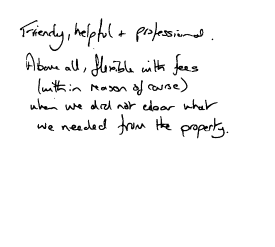 Friendly, helpful + professional.
Above all, flexible with fees
(within reason of course)
when we did not know what
we needed from the property.